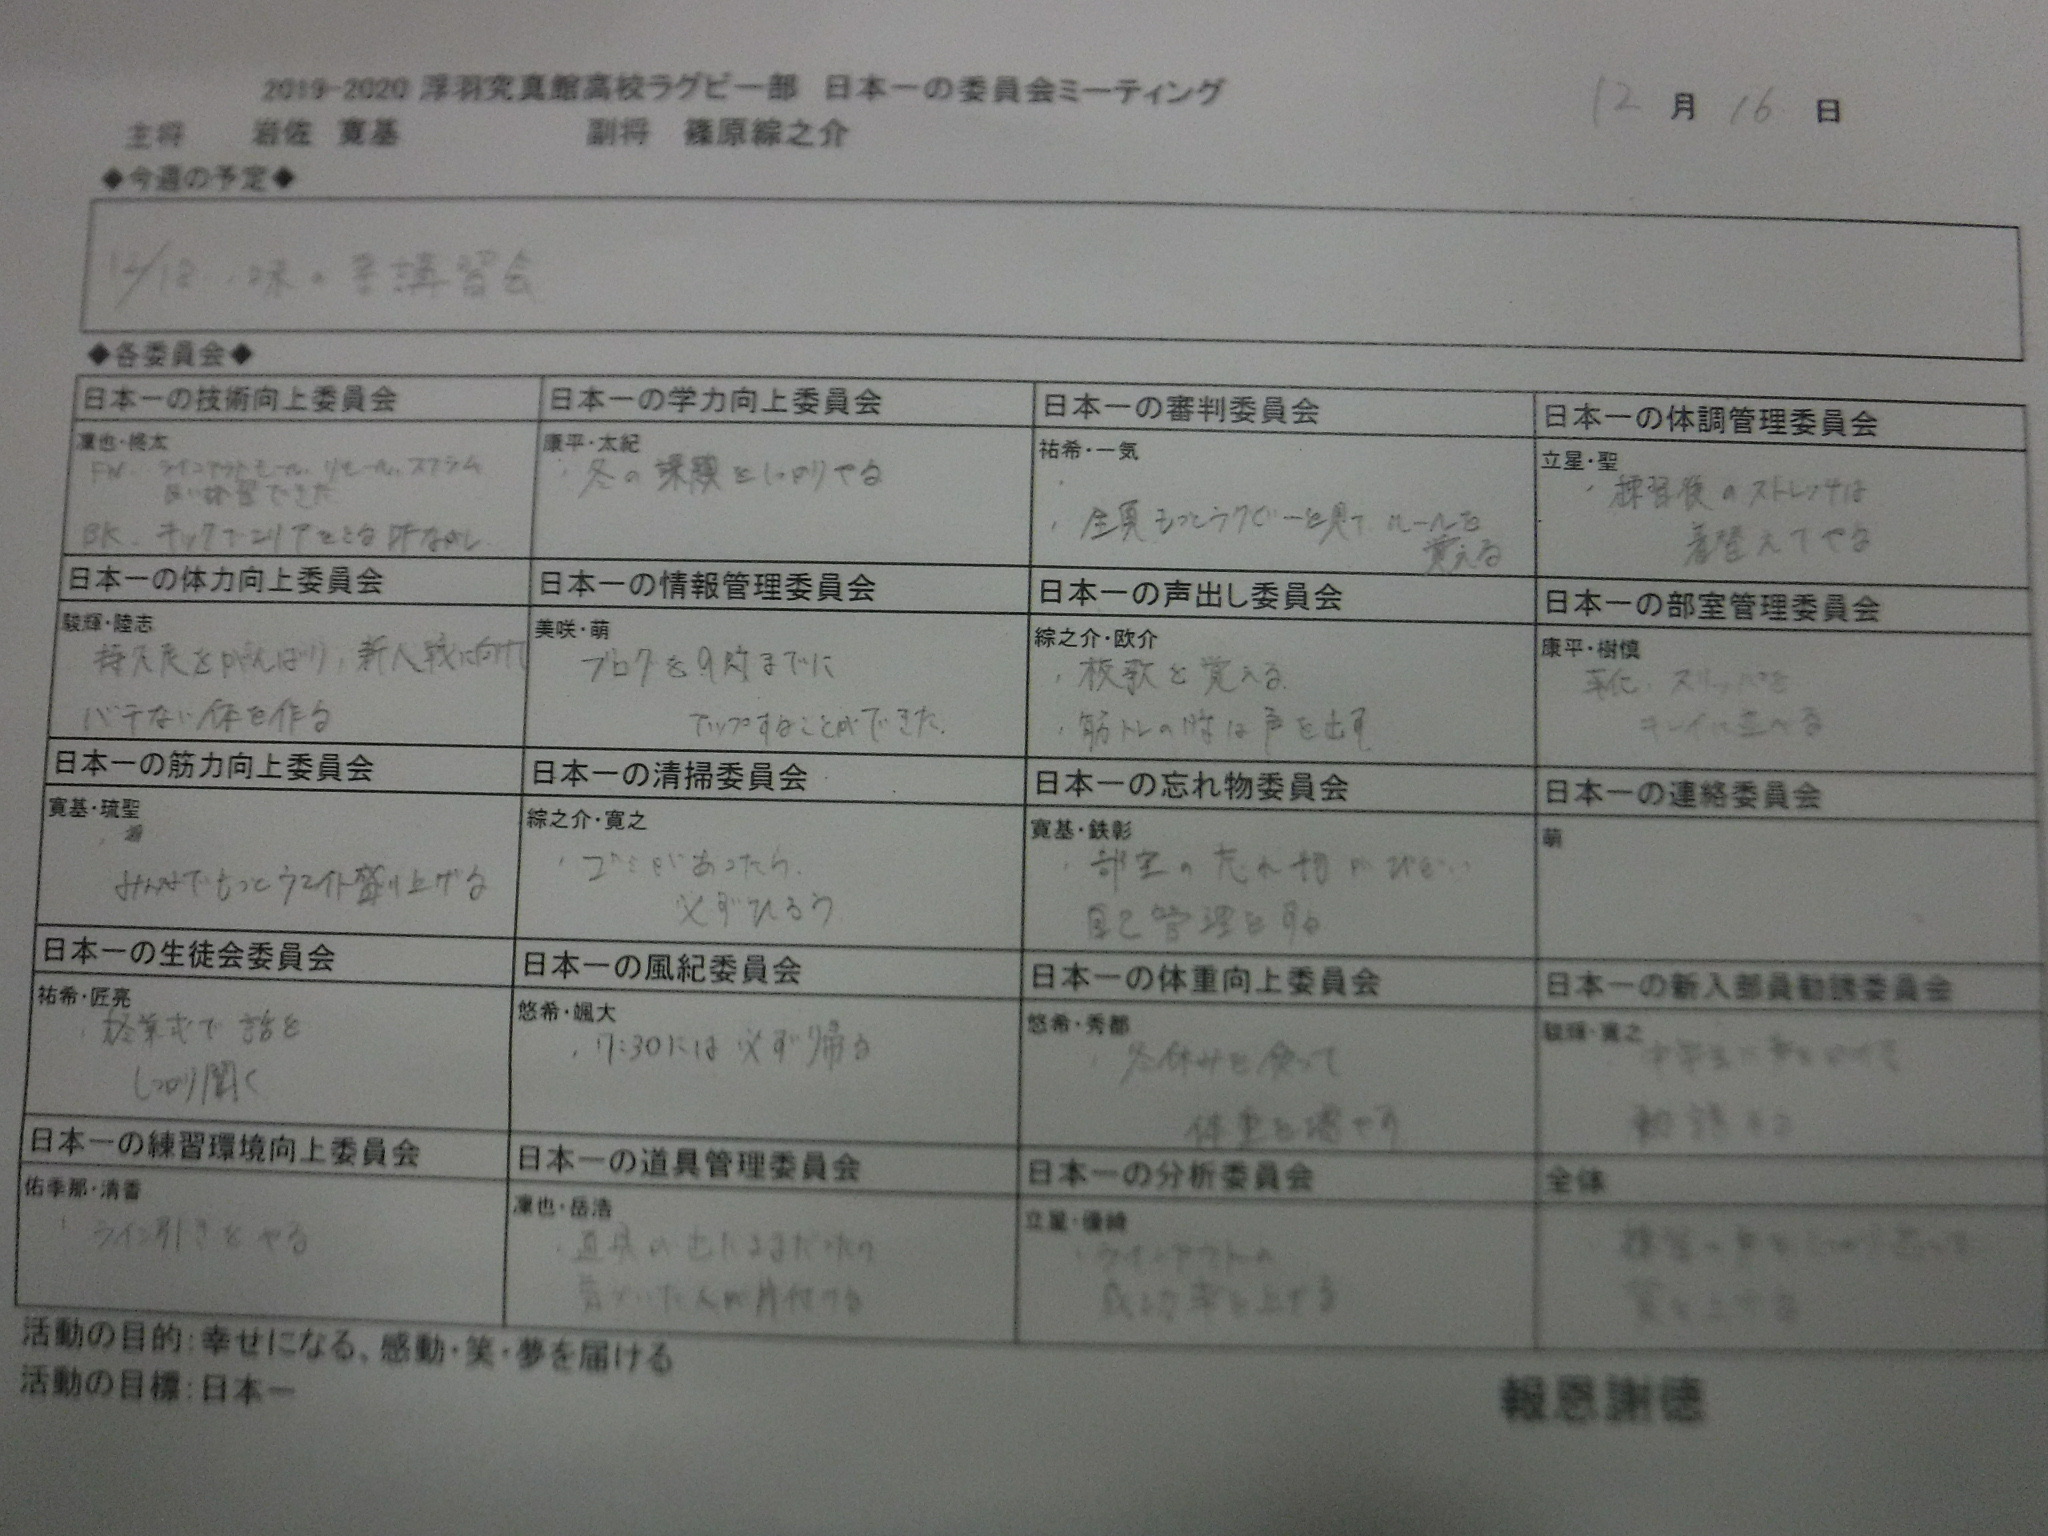 2019-2020 浮羽究真館高校ラグビー部 日本一の委員会ミーティング
12 月 16 日
主将 岩佐 寛基 副将 篠原綜之介
◆今週の予定◆
12/18 味の素講習会
◆各委員会◆
日本一の技術向上委員会
凜也・柊太
FW. ラインアウトモール、リモール、スクラム
良い練習できた
BK. キックでエリアをとる
日本一の学力向上委員会
康平・太紀
・冬の課題をしっかりやる
日本一の審判委員会
祐希・一気
・全員もっとラグビーを見て ルールを
覚える
日本一の体調管理委員会
立星・聖
・練習後のストレッチは
着替えてやる
日本一の体力向上委員会
駿輝・陸志
持久走をがんばり、新人戦に向け
バテない体を作る
日本一の情報管理委員会
美咲・萌
ブログを9時までに
アップすることができた.
日本一の声出し委員会
綜之介・欧介
・校歌を覚える
・筋トレの時は声を出す
日本一の部室管理委員会
康平・樹慎
革化、スリッパを
キレイに並べる
日本一の筋力向上委員会
寛基・琉聖
みんなでもっとウエイト盛り上げる
日本一の清掃委員会
綜之介・寛之
・ゴミがあったら.
必ずひろう
日本一の忘れ物委員会
寛基・鉄彰
・部室の忘れ物がひどい
自己管理をする
日本一の連絡委員会
萌
日本一の生徒会委員会
祐希・匠亮
・終業式で話を
しっかり聞く
日本一の風紀委員会
悠希・颯大
・17:30には必ず帰る
日本一の体重向上委員会
悠希・秀都
・冬休みを使って
体重を増やす
日本一の新入部員勧誘委員会
駿輝・寛之
中学生に声をかける
勧誘する
日本一の練習環境向上委員会
佑季那・清香
・ライン引きをやる
日本一の道具管理委員会
凜也・岳浩
・道具の出たままだったら
気づいた人が片付ける
日本一の分析委員会
立星・優綺
・ラインアウトの
成功率を上げる
全体
質を上げる
活動の目的：幸せになる、感動・笑・夢を届ける
活動の目標：日本一
報恩謝徳